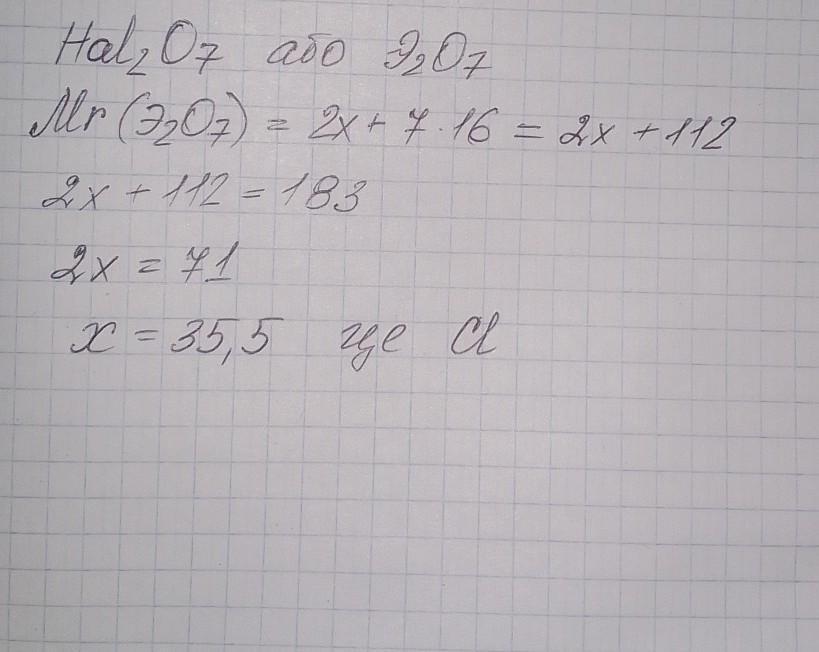 Hal₂O₇ або Э₂O₇
Mr (Э₂O₇) = 2x + 7·16 = 2x + 112
2x + 112 = 183
2x = 71
x = 35,5 це Cl